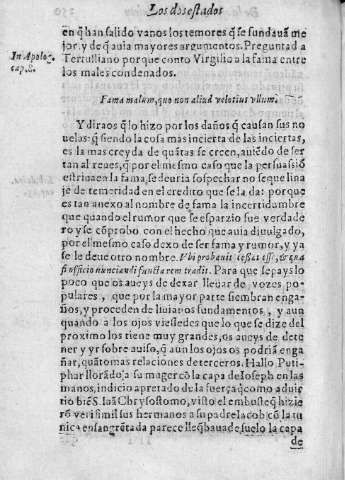 Los dos estados
en q̃ han salido vanos los temores q̃ se fundauã me
jor, y de q̃ auia mayores argumentos. Preguntad a
In Apolog. cap. 8.
Tertulliano porque conto Virgilio a la fama entre
los males condenados.
Fama malum, quo non aliud velotius vllum.
Y diraos q̃ lo hizo por los daños q̃ causan sus no
uelas: q̃ siendo la cosa mas incierta de las inciertas,
es la mas creyda de quãtas se creen, auiẽdo de ser
tan al reues, q̃ por el mesmo caso que la persuassiõ
estriua en la fama, se deuria sospechar no se que lina
je de temeridad en el credito que se la da: porque
es tan anexo al nombre de fama la incertidumbre
que quando el rumor que se esparzio fue verdade
ro y se cõprobo con el hecho que auia diuulgado,
por el mesmo caso dexo de ser fama y rumor, y ya
se le deue otro nombre. Vbi probauit cessat esse, & quasi
officio nunciandi functa rem tradit. Para que sepays lo
poco que os aueys de dexar lleuar de vozes po-
pulares, que por la mayor parte siembran enga-
ños, y proceden de liuianos fundamentos, y aun
quando a los ojos viessedes que lo que se dize del
proximo los tiene muy grandes, os aueys de dete
ner y yr sobre auiso, q̃ aun los ojos os podriã enga
ñar, quãto mas relaciones de terceros. Hallo Puti-
phar llorãdo, a su muger cõ la capa de Ioseph en las
manos, indicio apretado de la fuerça q̃ como aduir
tio biẽ S. Iuã Chrysostomo, visto el embuste q̃ hizie
rõ verisimil sus hermanos a su padre Iacob cõ la tu
nica ensangrẽtada parece lleq̃ bauade, suelo la capa
de